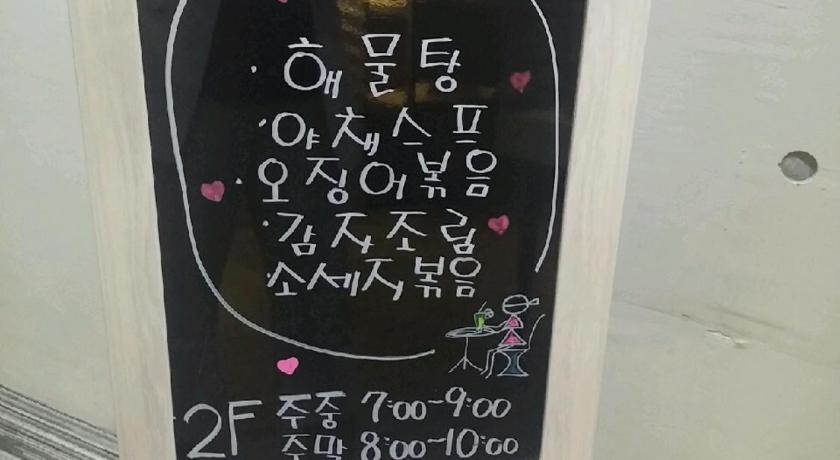 · 해물탕
· 야채스프
· 오징어볶음
· 감자조림
· 소세지볶음
2F 주중 7:00-9:00
주막 8:00-10:00